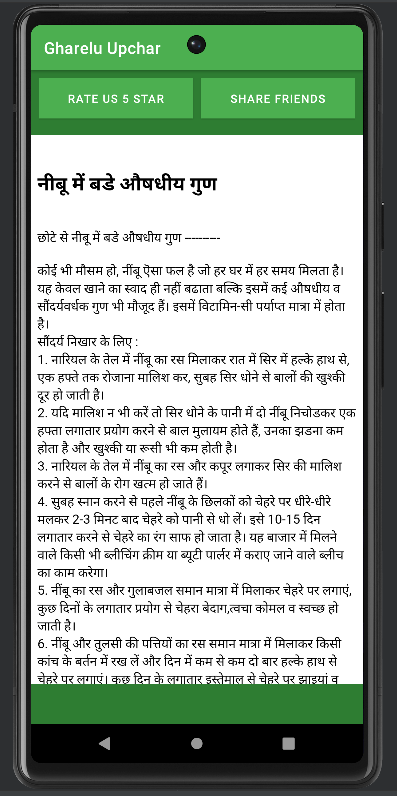 Gharelu Upchar
RATE US 5 STAR
SHARE FRIENDS
नीबू में बडे औषधीय गुण
छोटे से नीबू में बडे औषधीय गुण ----------
कोई भी मौसम हो, नींबू ऎसा फल है जो हर घर में हर समय मिलता है।
यह केवल खाने का स्वाद ही नहीं बढाता बल्कि इसमें कई औषधीय व
सौंदर्यवर्धक गुण भी मौजूद हैं। इसमें विटामिन-सी पर्याप्त मात्रा में होता
है।
सौंदर्य निखार के लिए :
1. नारियल के तेल में नींबू का रस मिलाकर रात में सिर में हल्के हाथ से,
एक हफ्ते तक रोजाना मालिश कर, सुबह सिर धोने से बालों की खुश्की
दूर हो जाती है।
2. यदि मालिश न भी करें तो सिर धोने के पानी में दो नींबू निचोडकर एक
हफ्ता लगातार प्रयोग करने से बाल मुलायम होते हैं, उनका झडना कम
होता है और खुश्की या रूसी भी कम होती है।
3. नारियल के तेल में नींबू का रस और कपूर लगाकर सिर की मालिश
करने से बालों के रोग खत्म हो जाते हैं।
4. सुबह स्नान करने से पहले नींबू के छिलकों को चेहरे पर धीरे-धीरे
मलकर 2-3 मिनट बाद चेहरे को पानी से धो लें। इसे 10-15 दिन
लगातार करने से चेहरे का रंग साफ हो जाता है। यह बाजार में मिलने
वाले किसी भी ब्लीचिंग क्रीम या ब्यूटी पार्लर में कराए जाने वाले ब्लीच
का काम करेगा।
5. नींबू का रस और गुलाबजल समान मात्रा में मिलाकर चेहरे पर लगाएं,
कुछ दिनों के लगातार प्रयोग से चेहरा बेदाग,त्वचा कोमल व स्वच्छ हो
जाती है।
6. नींबू और तुलसी की पत्तियों का रस समान मात्रा में मिलाकर किसी
कांच के बर्तन में रख लें और दिन में कम से कम दो बार हल्के हाथ से
चेहरे पर लगाएं। कुछ दिन के लगातार इस्तेमाल से चेहरे पर झाइयां व